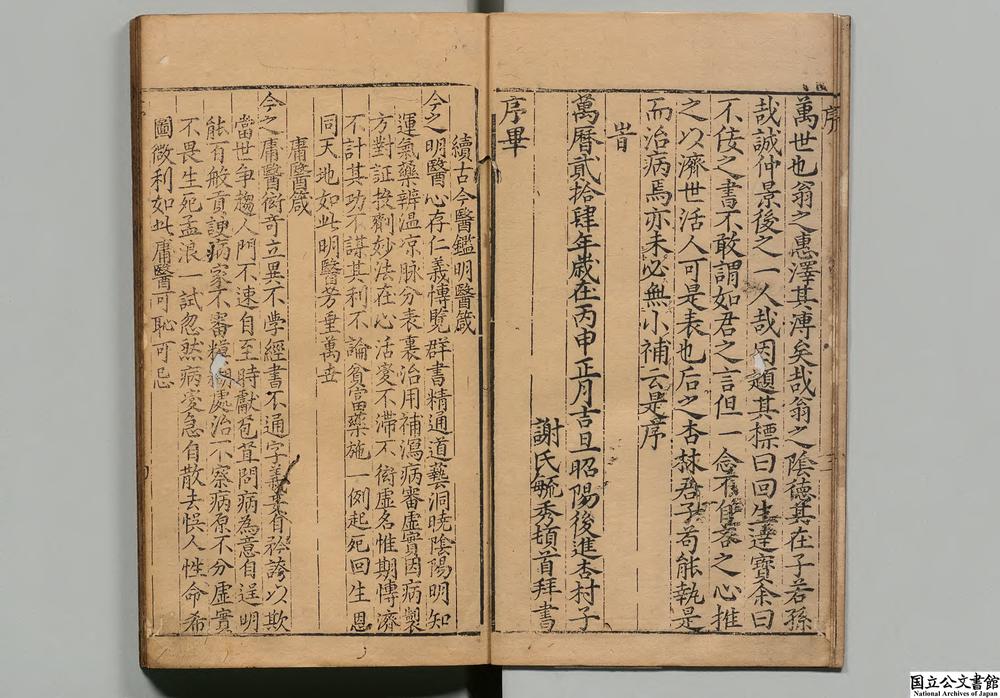 序
萬世也翁之惠澤其溥矣哉翁之陰德其在子若孫
哉誠仲景後之一人哉因題其標曰回生達寶余曰
不佞之書不敢謂如君之言但一念不自之心推
之以濟世活人可是表也后之杏林君子苟能執是
而治病焉亦未必無小補云是序
旹
萬曆貳拾肆年歲在丙申正月吉旦昭陽後進杏村子
謝氏毓秀頓首拜書
序畢
續古今醫鑑明醫箴
今之明醫心存仁義博覽群書精通道藝洞曉陰陽明知
運氣藥辨温凉脉分表裏治用補瀉病審虛實因病製
方對証投劑妙法在心活變不滯不衒虛名惟期博濟
不計其功不謀其利不論貧富藥施一例起死回生恩
同天地如此明醫芳垂萬世
庸醫箴
今之庸醫衒奇立異不學經書不通字義妄自矜誇以欺
當世争趨人門不速自至時獻苞苴問病為意自逞明
能百般貢諛病家不審模糊處治不察病原不分虛實
不畏生死孟浪一試忽然病變急自散去悞人性命希
圖微利如此庸醫可恥可忌
国立公文書館
National Archives of Japan